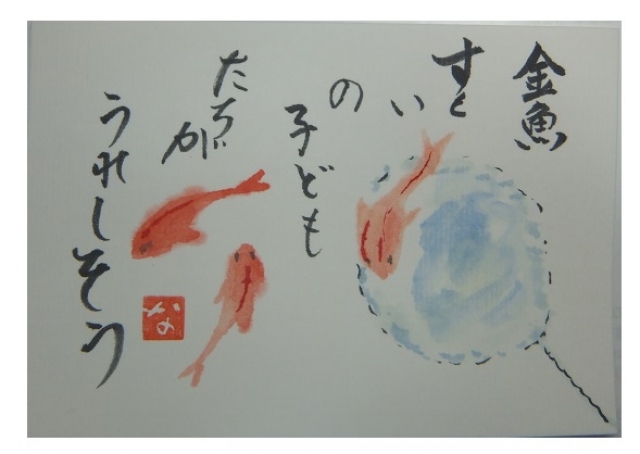 金魚
すくい
の
子ども
たちが
うれしそう
かの